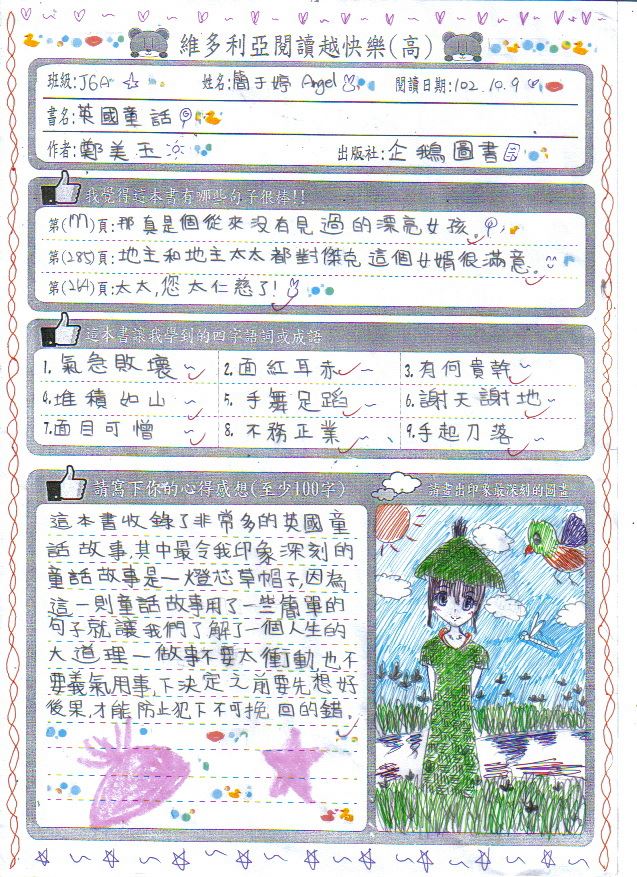 維多利亞閱讀越快樂(高)
班級:J6A 姓名:簡于婷 Angel 閱讀日期:102.10.9
書名:英國童話
作者:鄭美玉 出版社:企鵝圖書
我覺得這本書有哪些句子很棒!!
第(177)頁:那真是個從來沒有見過的漂亮女孩。
第(285)頁:地主和地主太太都對傑克這個女婿很滿意。
第(264)頁:太太,您太仁慈了!
這本書讓我學到的四字語詞或成語
1.氣急敗壞 2.面紅耳赤 3.有何貴幹
4.堆積如山 5.手舞足蹈 6.謝天謝地
7.面目可憎 8.不務正業 9.手起刀落
請寫下你的心得感想(至少100字) 請畫出印象最深刻的圖畫
這本書收錄了非常多的英國童
話故事,其中最令我印象深刻的
童話故事是—燈芯草帽子,因為
這一則童話故事用了一些簡單的
句子就讓我們了解了一個人生的
大道理—做事不要太衝動,也不
要義氣用事,下決定之前要先想好
後果,才能防止犯下不可挽回的錯。